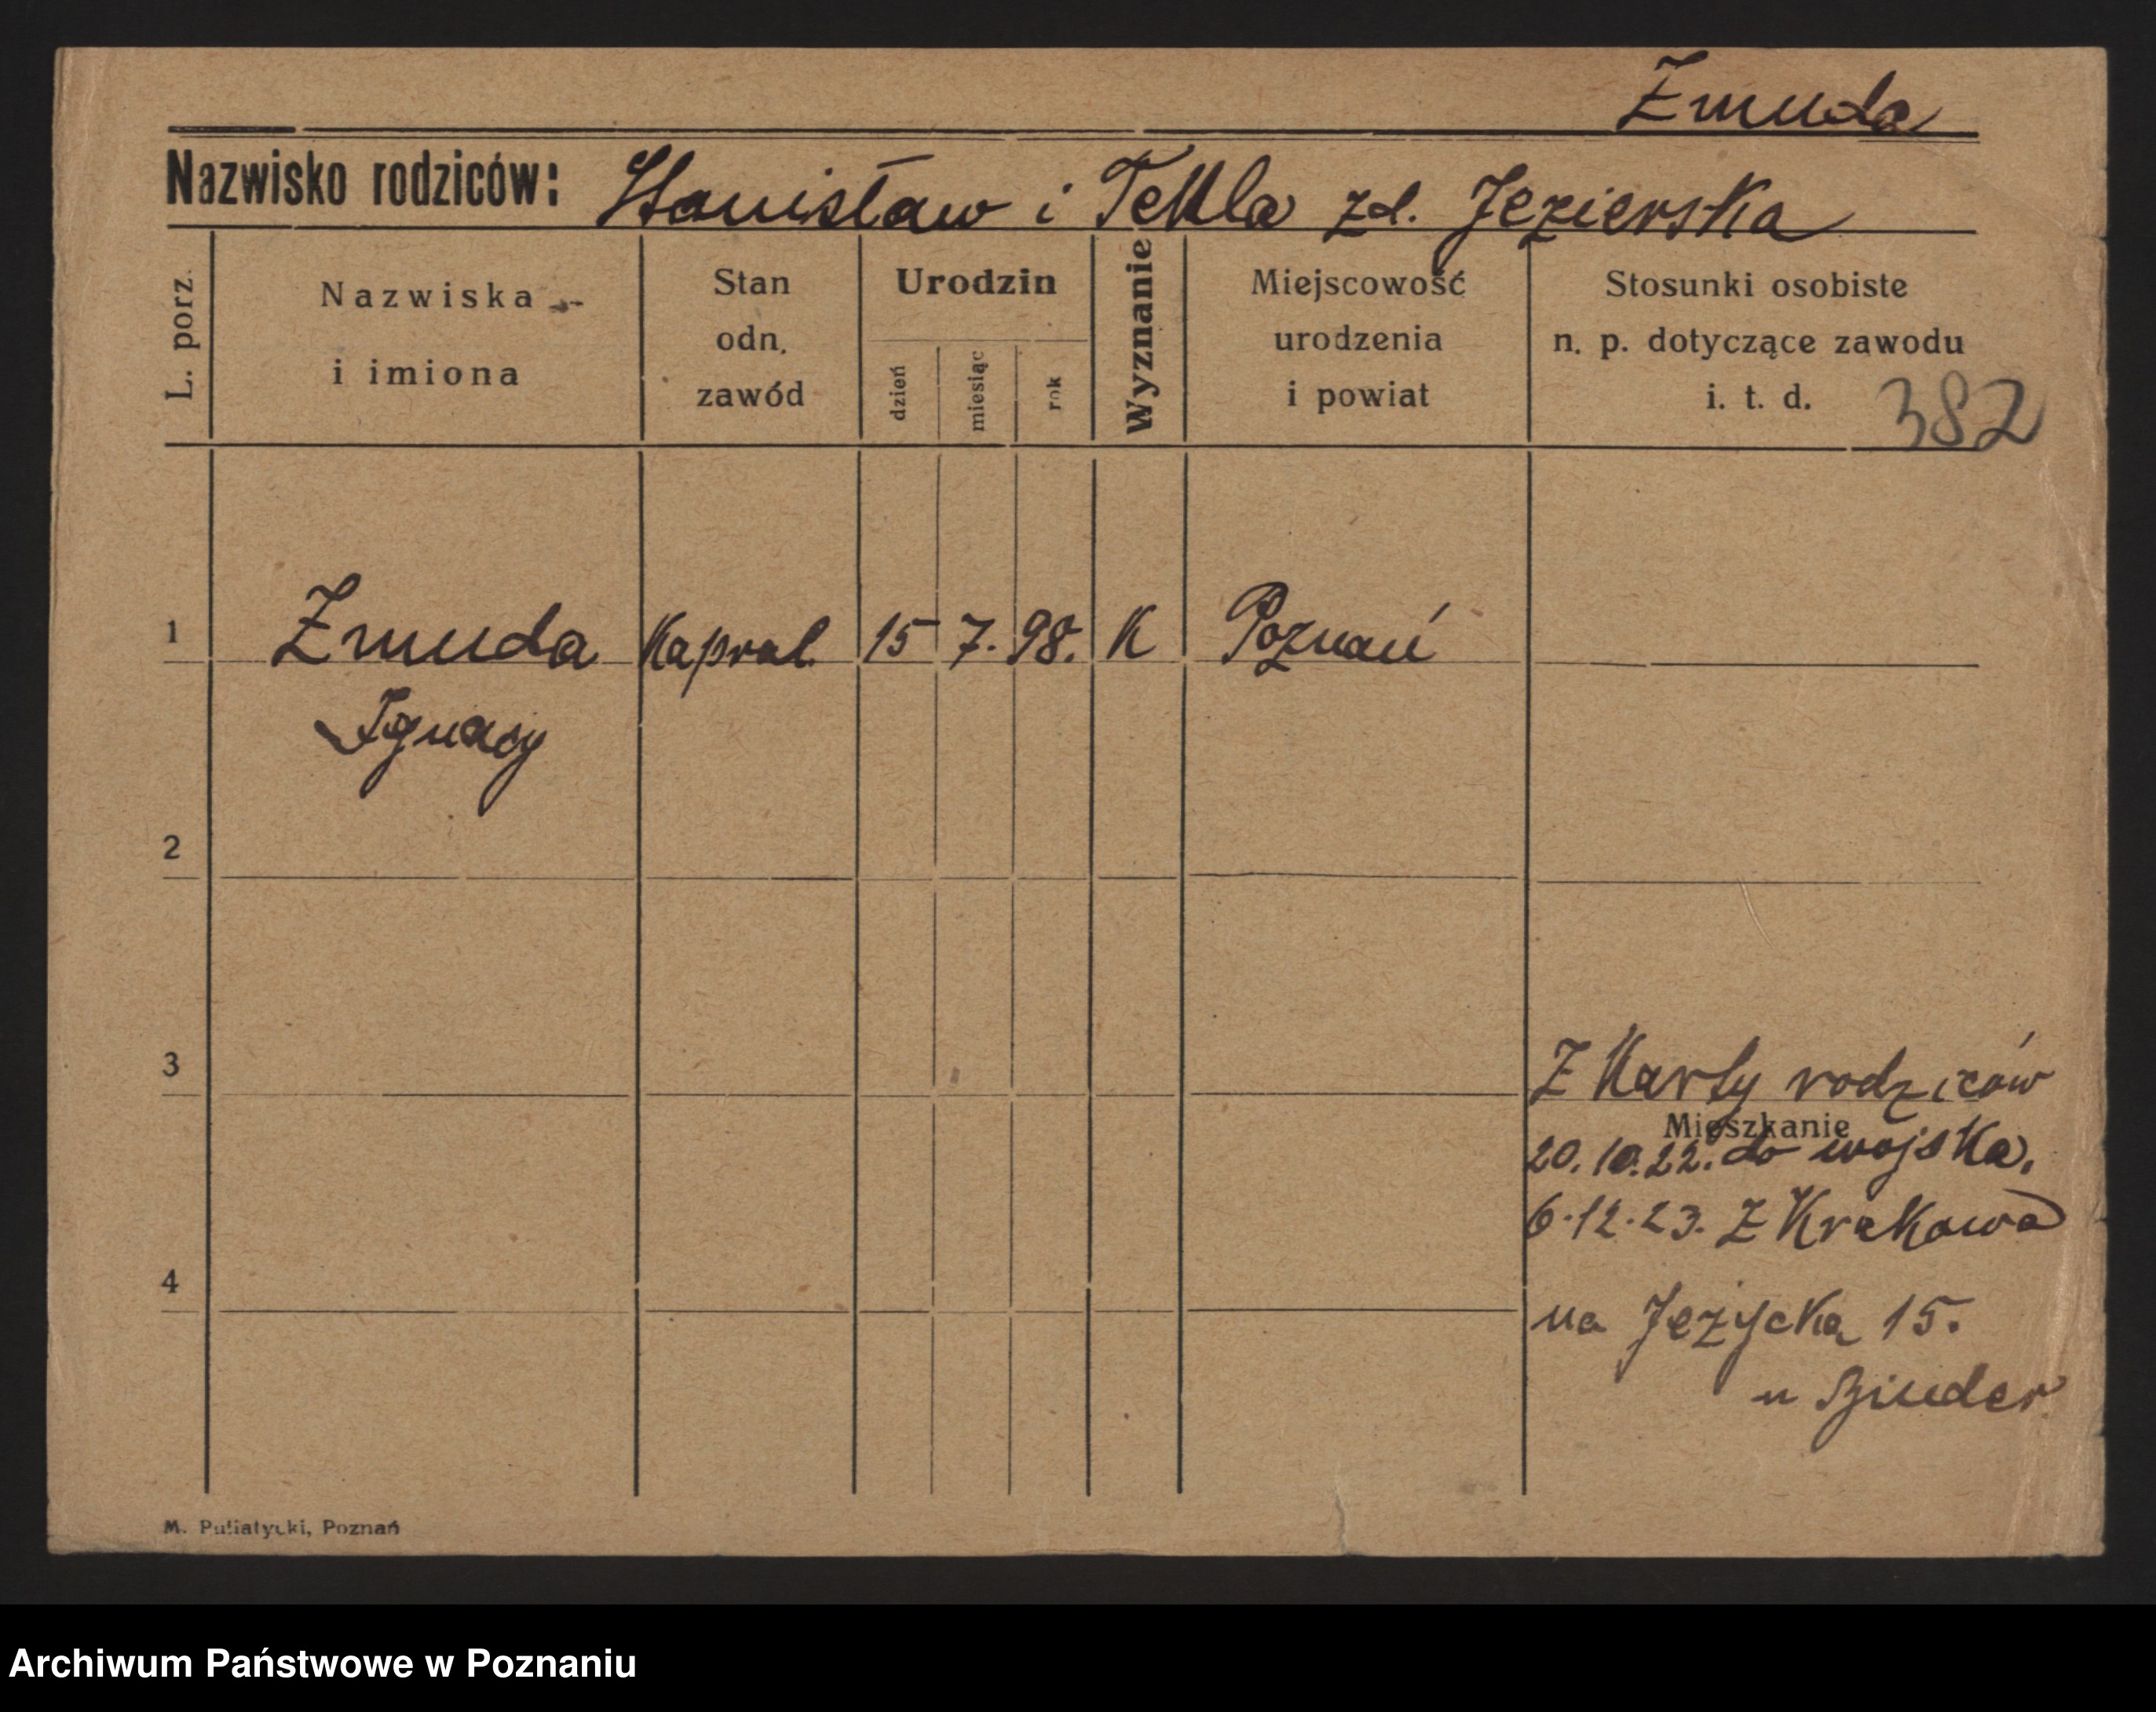 Zmuda
Nazwisko rodziców: Stanisław i Tekla zd. Jezierska
L. porz.
Nazwiska
i imiona
Stan
odn.
zawód
Urodzin
dzień
miesiąc
rok
Wyznanie
Miejscowość
urodzenia
i powiat
Stosunki osobiste
n. p. dotyczące zawodu
i. t. d.
382
1 Zmuda Kapral. 15 7. 98. K Poznań
Ignacy
2
3
Z Karty rodziców
Mieszkanie
20. 10. 22. do wojska.
6. 12. 23. Z Krakowa
4
na Jeżycka 15.
u
M. Putiatycki, Poznań
Archiwum Państwowe w Poznaniu